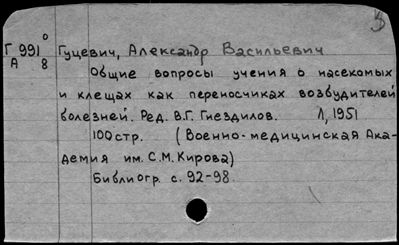 5
Г 991 0 Гуцевич, Александр Васильевич
А 8
Общие вопросы учения о насекомых
и клещах как переносчиках возбудителей
болезней. Ред. В.Г. Гнездилов. Л, 1951
100стр. (Военно-медицинская Ака-
демия им. С.М.Кирова)
Библиогр. с. 92-98.